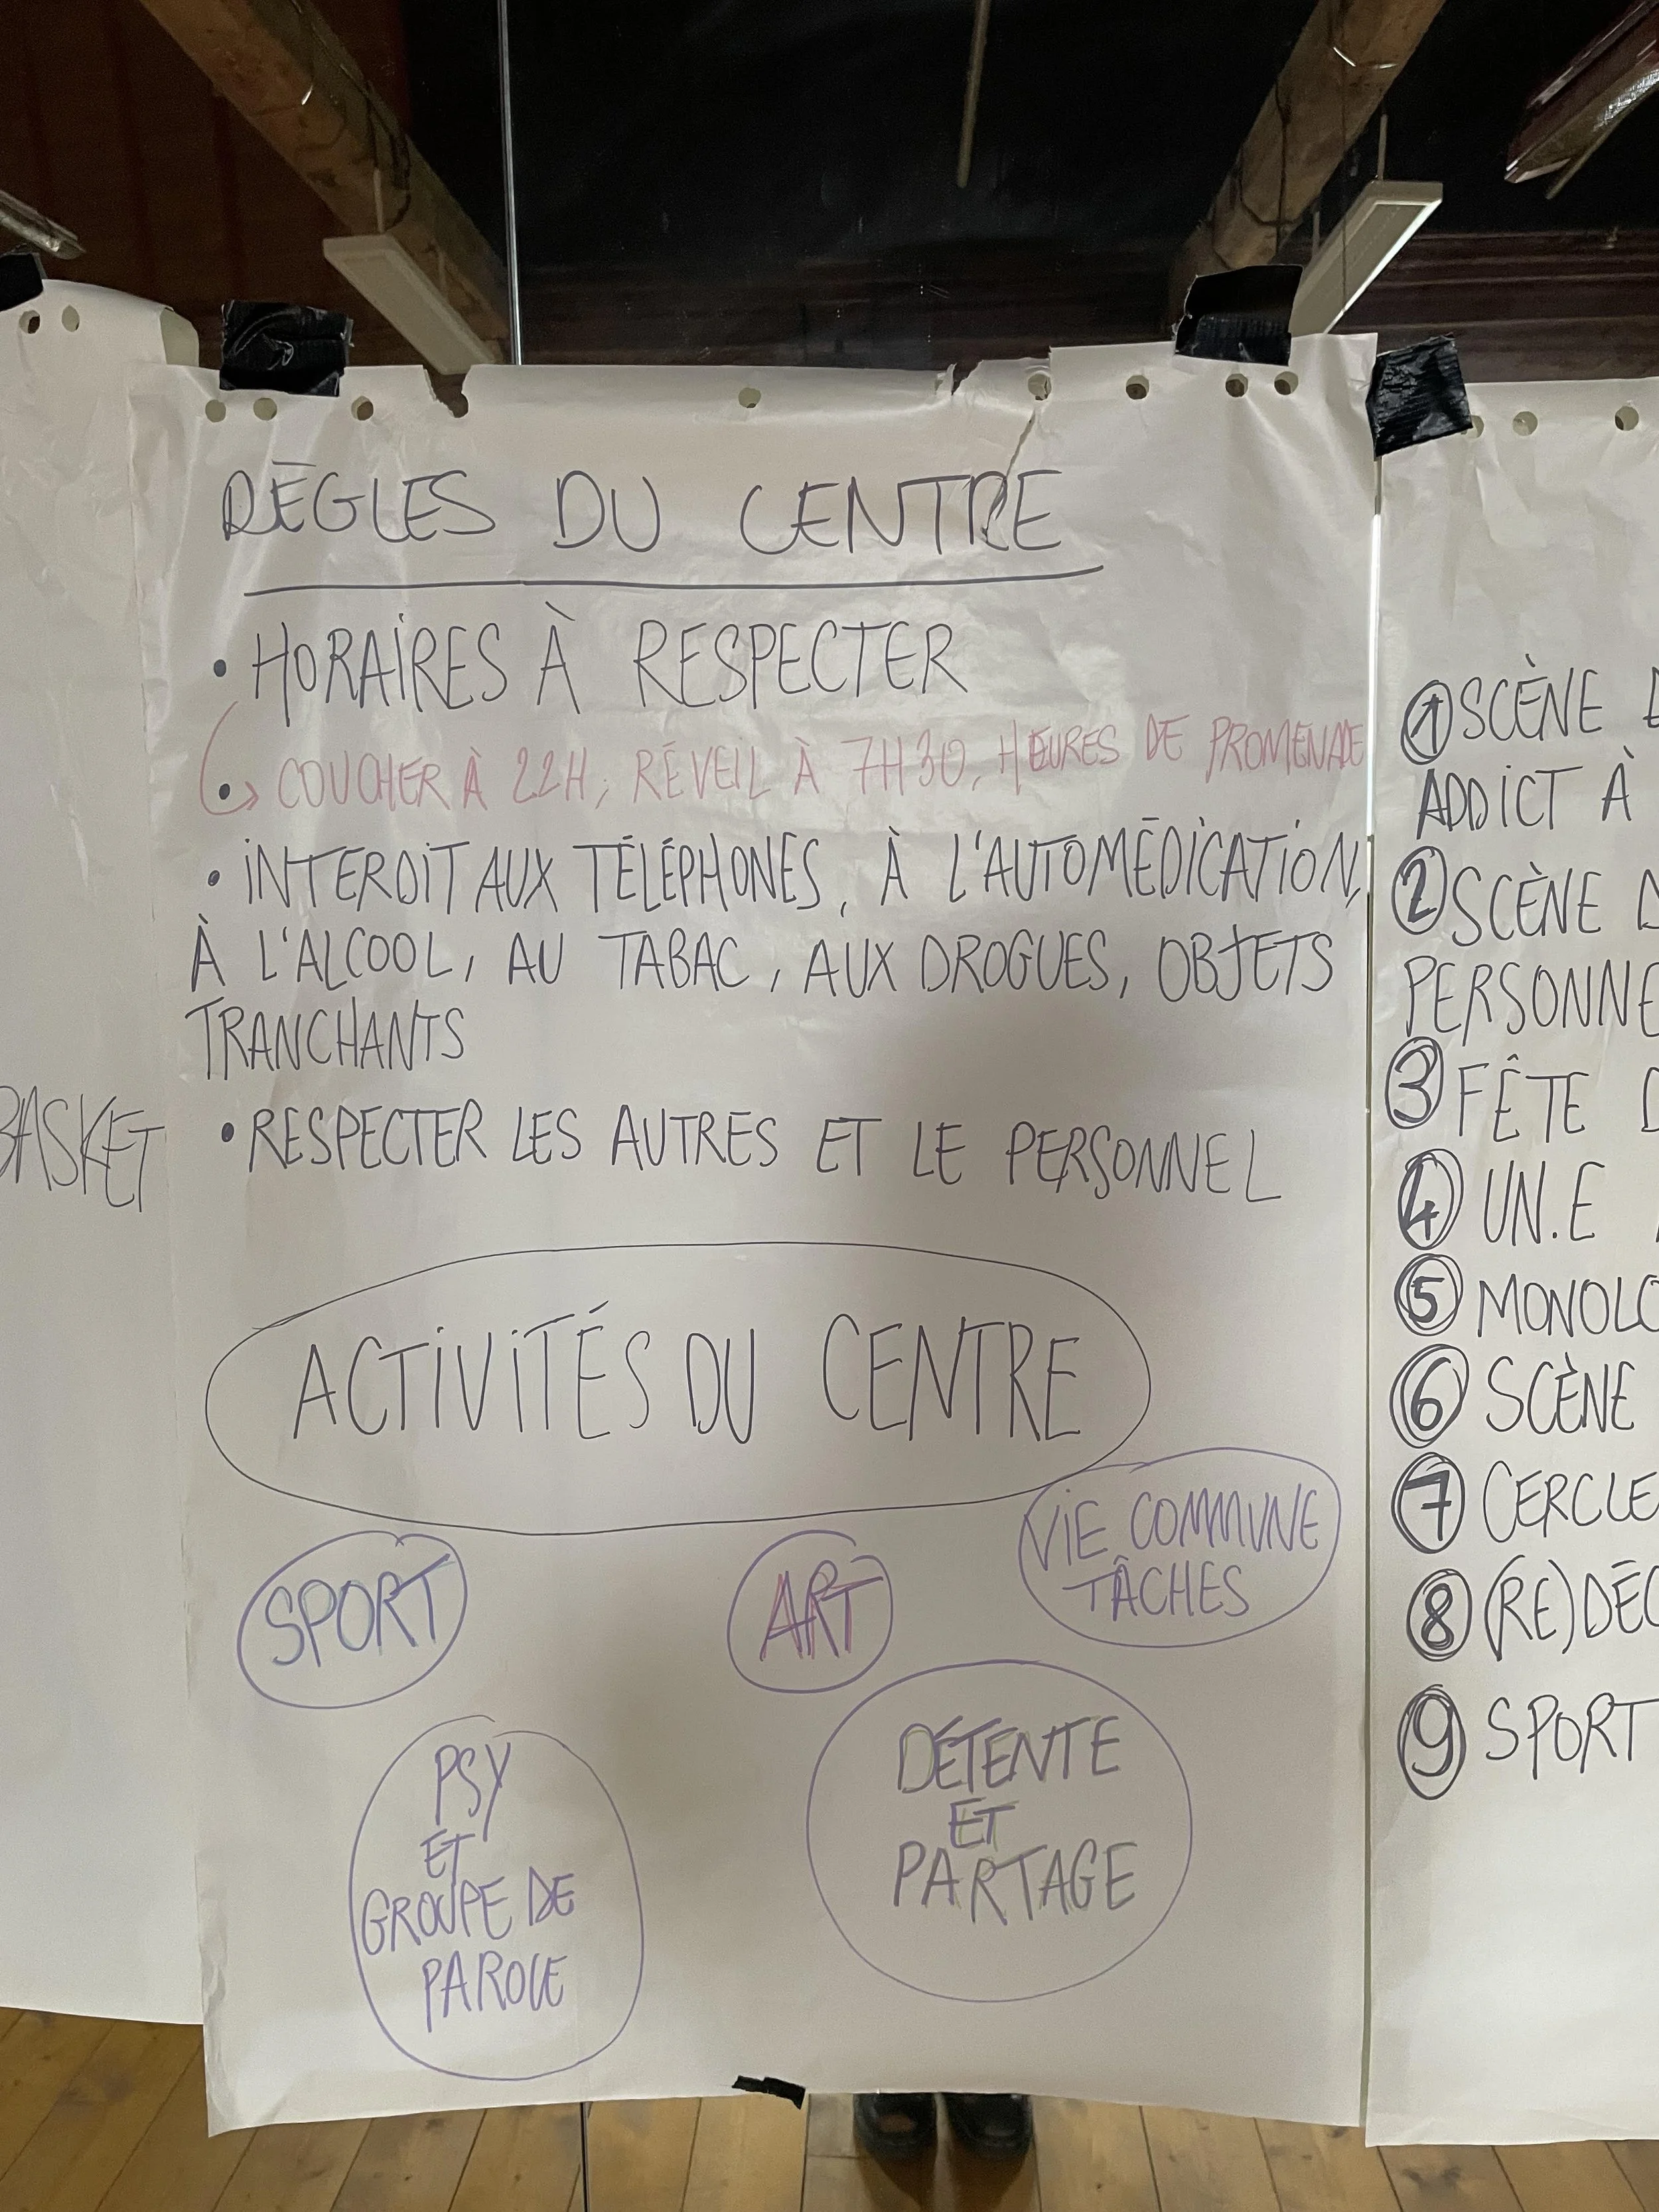 BASKET
RÈGLES DU CENTRE
• HORAIRES À RESPECTER
COUCHER À 22H, RÉVEIL À 7H30, HEURES DE PROMENADE
• INTERDIT AUX TÉLÉPHONES, À L'AUTOMÉDICATION,
À L'ALCOOL, AU TABAC, AUX DROGUES, OBJETS
TRANCHANTS
• RESPECTER LES AUTRES ET LE PERSONNEL
ACTIVITÉS DU CENTRE
SPORT
ART
VIE COMMUNE
TÂCHES
PSY
ET
GROUPE DE
PAROLE
DÉTENTE
ET
PARTAGE
1 SCÈNE
ADDICT À
2 SCÈNE
PERSONNE
3 FÊTE
4 UN.E
5
6 SCÈNE
7 CERCLE
8
9 SPORT